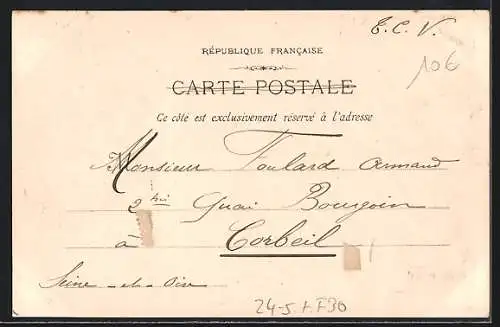 T. C. V.
RÉPUBLIQUE FRANÇAISE
10€
CARTE POSTALE
Ce côté est exclusivement réservé à l'adresse
Monsieur Foulard Armand
2 bis Quai Bourgoin
à Corbeil
Seine-et-Oise
24-5.
F30